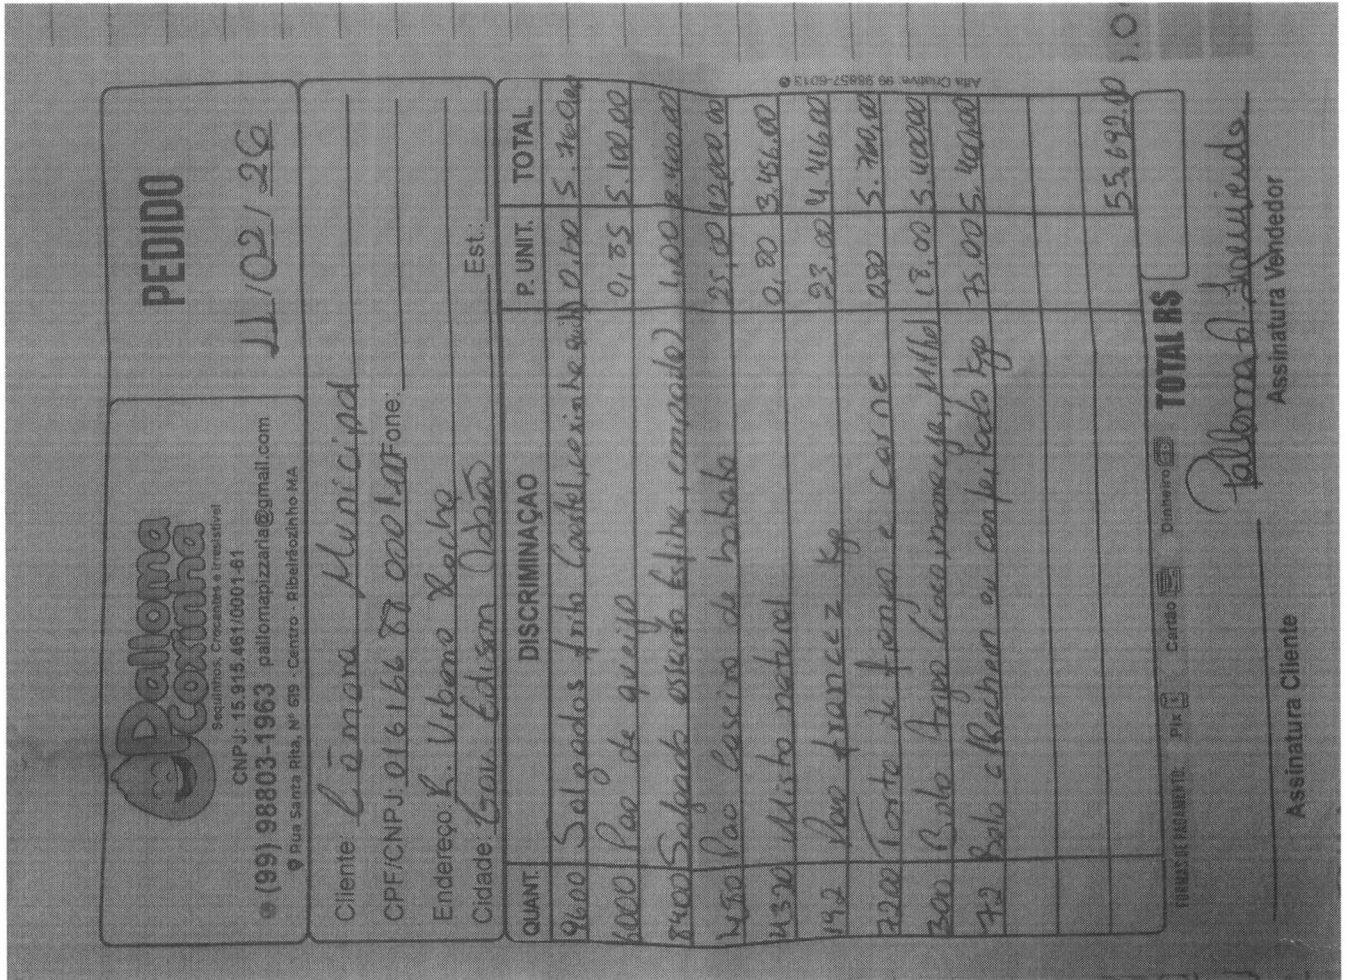 Palloma
coxinha
Sequinhos, Crocantes e Irresistível
CNPJ: 15.915.461/0001-61
(99) 98803-1963 pallomapizzaria@gmail.com
Rua Santa Rita, Nº 619 - Centro - Ribeirãozinho MA
PEDIDO
11/02/26
Cliente: Câmara Municipal
CPF/CNPJ: Fone:
Endereço: R. Urbano Rocha
Cidade: Gov. Edison Lobão Est.:
QUANT. DISCRIMINAÇÃO P. UNIT. TOTAL
9600 Salgados frito (pastel, coxinha 0,60 5.760,00
6000 Pao de queijo 0,85 5.100,00
8400 Salgado assado (esfiha, enrolado) 1,00 8.400,00
480 Pao Caseiro de batata 25,00 12.000,00
4320 Misto natural 0,80 3.456,00
192 Pao francez Kg 23,00 4.416,00
7200 Torta de frango e carne 0,80 5.760,00
300 Bolo Milho) 18,00 5.400,00
72 Bolo c/ Recheio ou confeitado Kg 75,00 5.400,00
55.692,00
FORMAS DE PAGAMENTO: Pix Cartão Dinheiro TOTAL R$
Assinatura Cliente
Palloma
Assinatura Vendedor
Alfa Criative 99 98857-6013